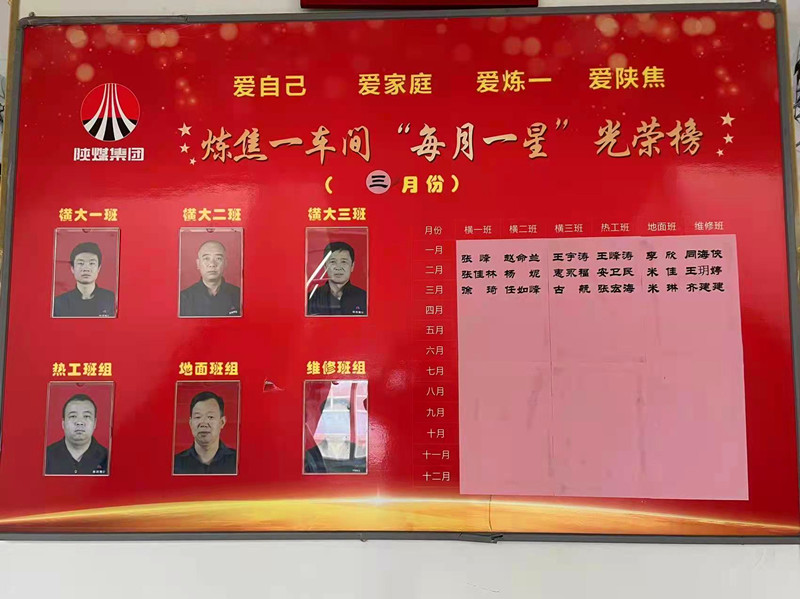 爱自己 爱家庭 爱炼一 爱陕焦
陕煤集团
炼焦一车间 “每月一星” 光荣榜
（ 三 月份）
横大一班 横大二班 横大三班
热工班组 地面班组 维修班组
月份 横一班 横二班 横三班 热工班 地面班 维修班
一月 张峰 赵命兰 王宇涛 王峰涛 李欣 同海侠
二月 张佳林 杨妮 惠永福 安卫民 米佳 王玥婷
三月 徐琦 任如峰 古航 张宏海 米琳 齐建建
四月
五月
六月
七月
八月
九月
十月
十一月
十二月